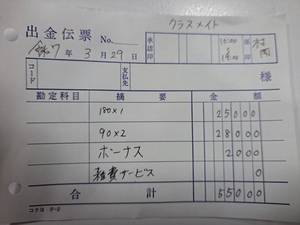 クラスメイト
出金伝票 No.
承認印
係印 村岡
令和7年3月29日
コード 支払先 様
勘定科目 摘要 金額
180×1 25000
90×2 28000
ボーナス 2000
雑費サービス 0
合計 55000
コクヨ